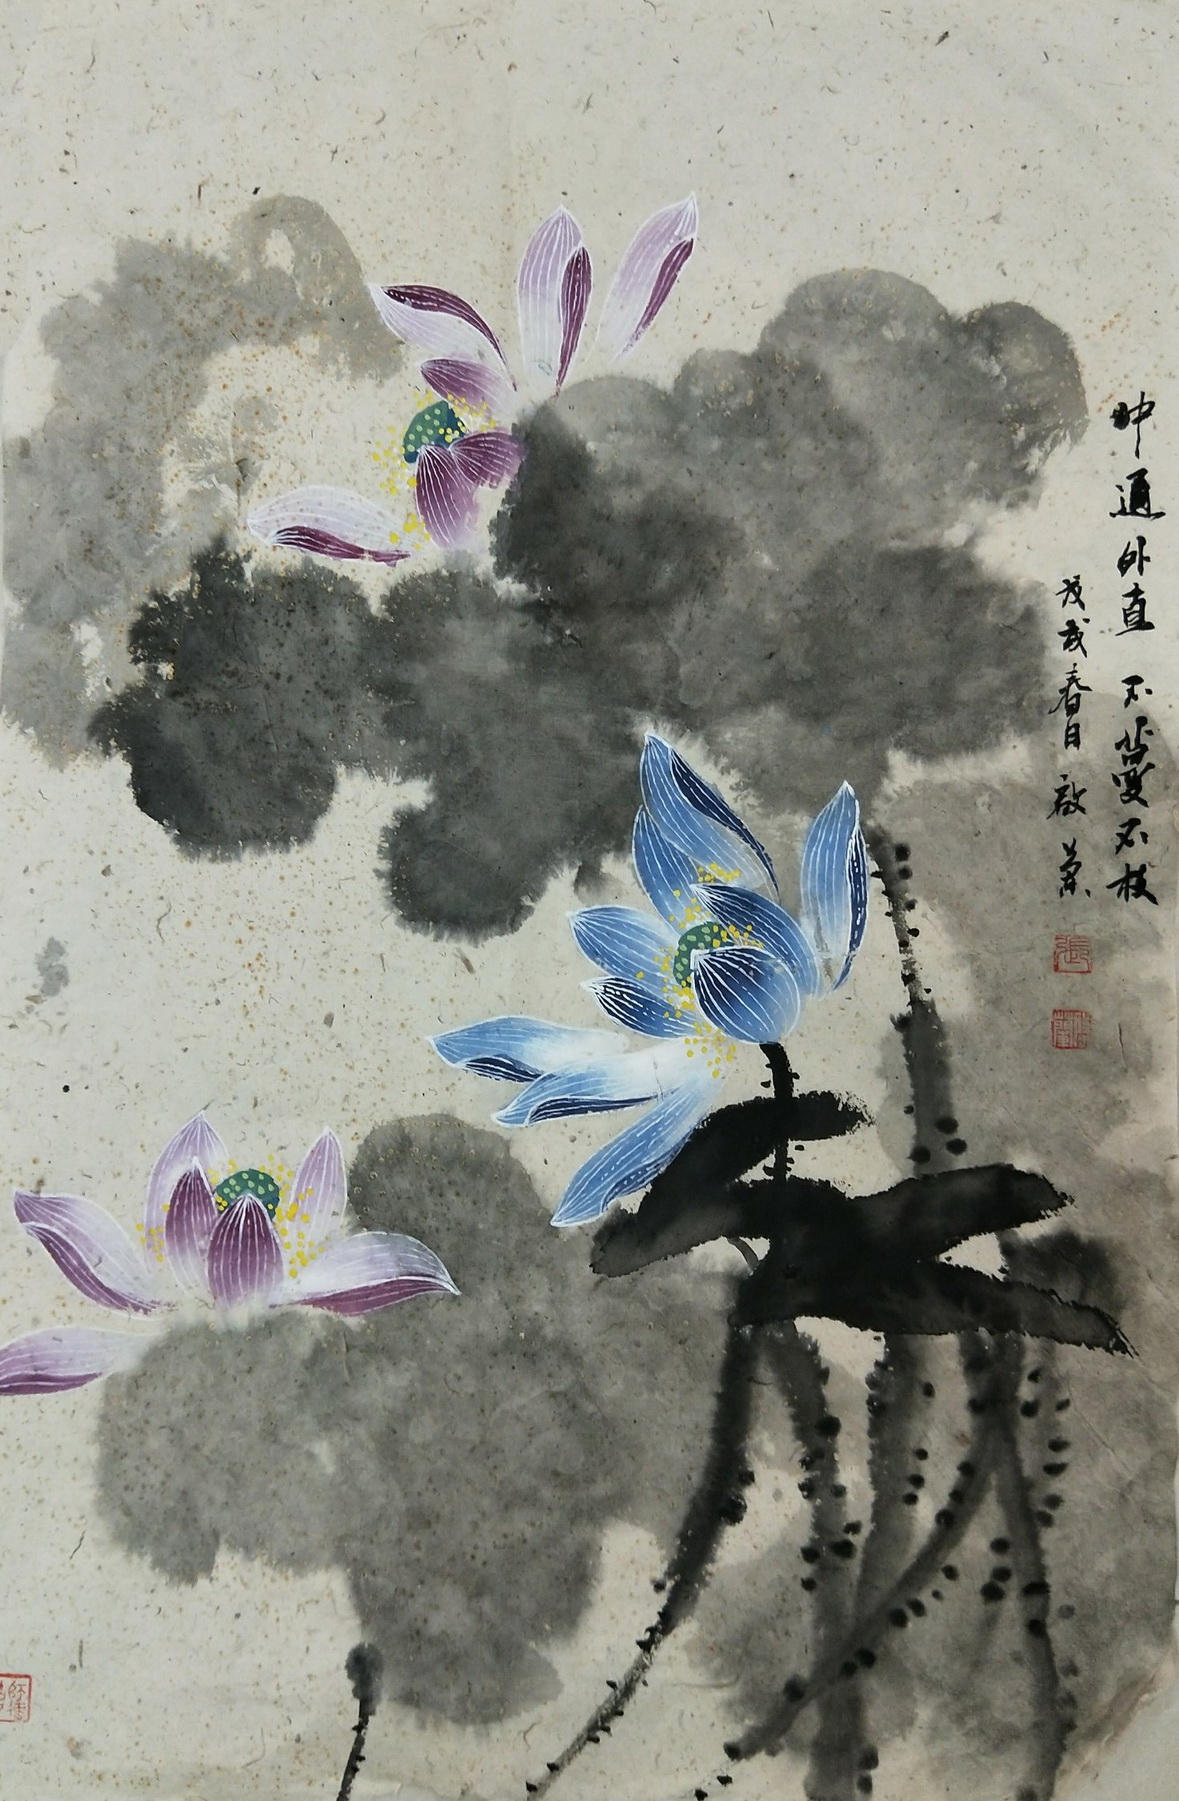 中通外直 不蔓不枝
戊戌春日 啟
張